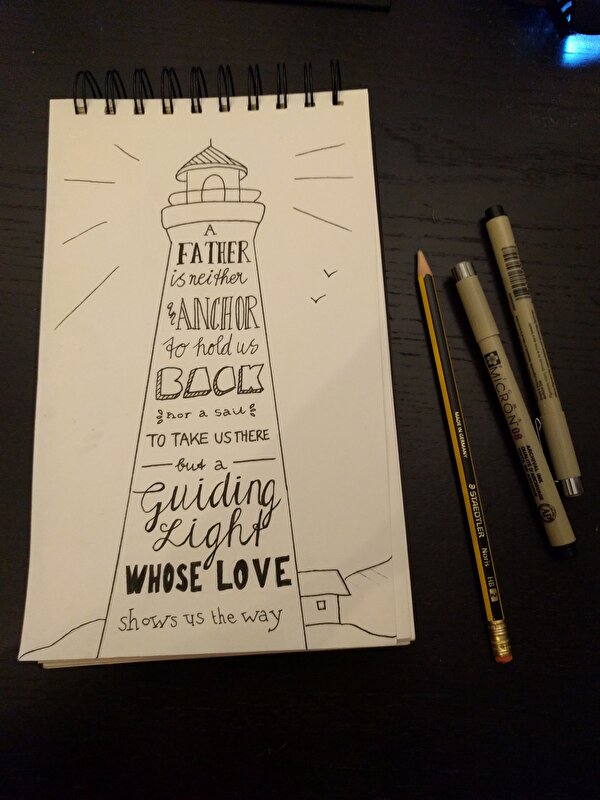 A
FATHER
is neither
an ANCHOR
to hold us
BACK
nor a sail
TO TAKE US THERE
but a
Guiding
Light
WHOSE LOVE
shows us the way
MADE IN GERMANY
STAEDTLER
Noris HB 2
MICRON 08
ARCHIVAL INK